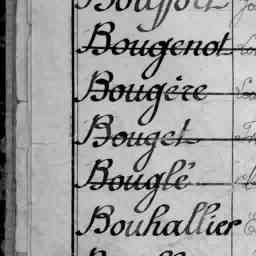 Bougenot
Bougère
Bouget
Bouglé
Bouhallier